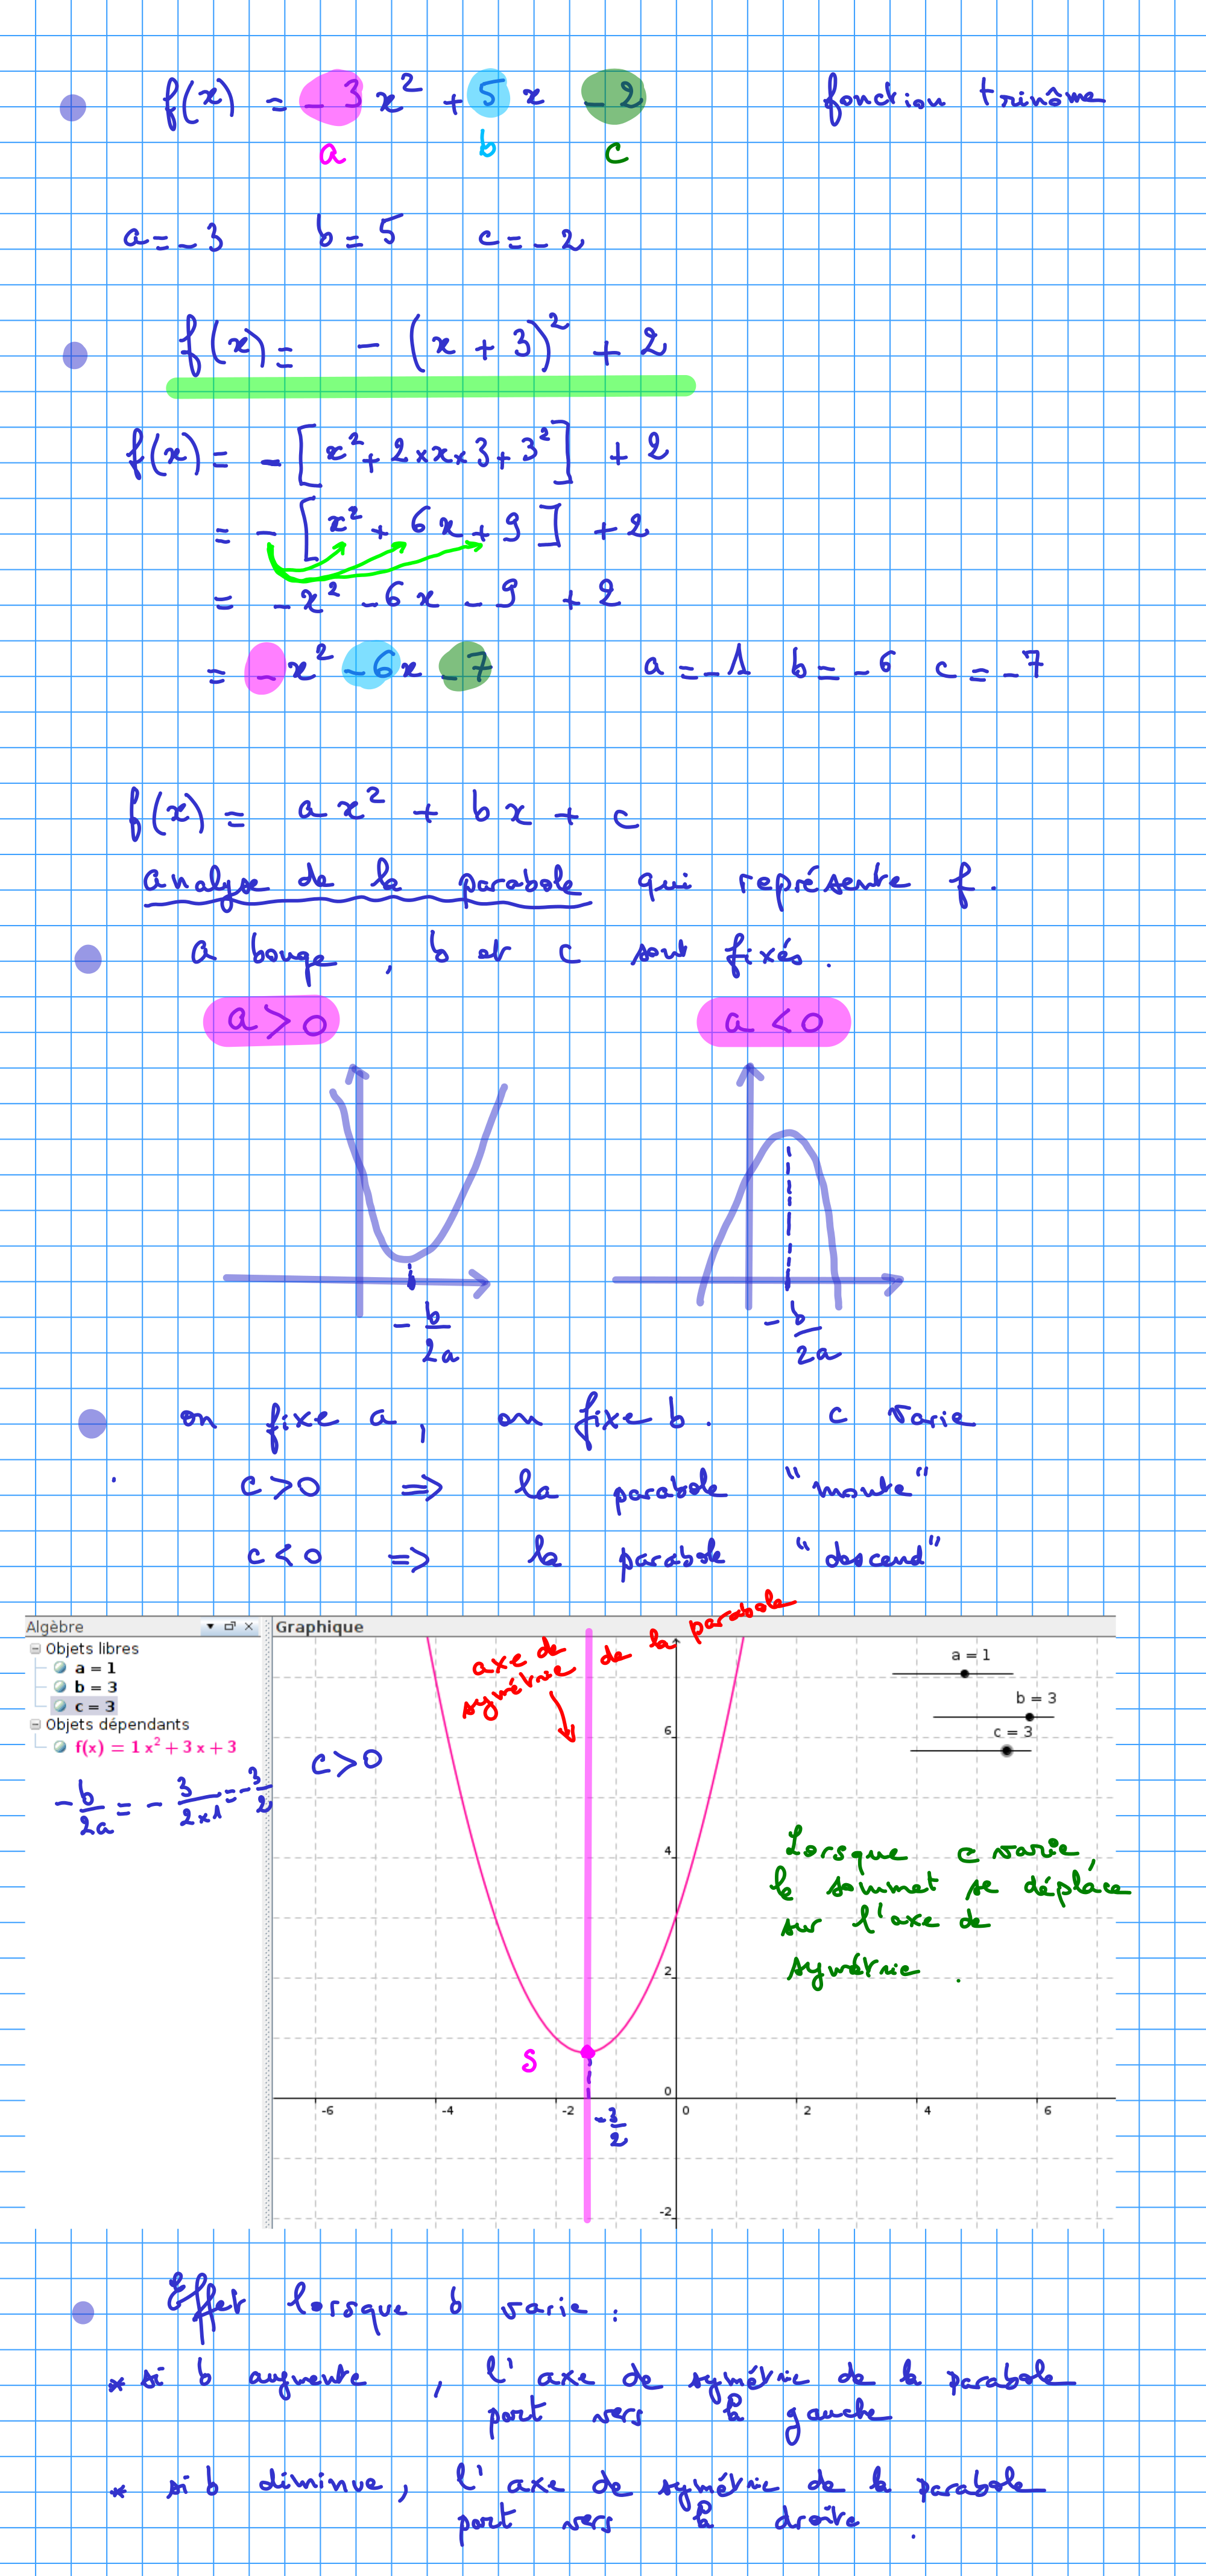 f(x) = -3x² + 5x - 2 fonction trinôme
a b c
a = -3 b = 5 c = -2
f(x) = -(x + 3)² + 2
f(x) = -[x² + 2×x×3 + 3²] + 2
= -[x² + 6x + 9] + 2
= -x² - 6x - 9 + 2
= -x² - 6x - 7 a = -1 b = -6 c = -7
f(x) = ax² + bx + c
analyse de la parabole qui représente f.
a bouge, b et c sont fixés.
a > 0 a < 0
-b/2a -b/2a
on fixe a, on fixe b. c varie
c > 0 ⇒ la parabole "monte"
c < 0 ⇒ la parabole "descend"
Algèbre
Objets libres
a = 1
b = 3
c = 3
Objets dépendants
f(x) = 1 x² + 3 x + 3
-b/2a = -3/2×1 = -3/2
Graphique
axe de symétrie de la parabole
c > 0
a = 1
b = 3
c = 3
Lorsque c varie,
le sommet se déplace
sur l'axe de
symétrie.
S
-3/2
6
4
2
0
-2
-6 -4 -2 0 2 4 6
Effet lorsque b varie :
* si b augmente, l'axe de symétrie de la parabole
part vers la gauche
* si b diminue, l'axe de symétrie de la parabole
part vers la droite.